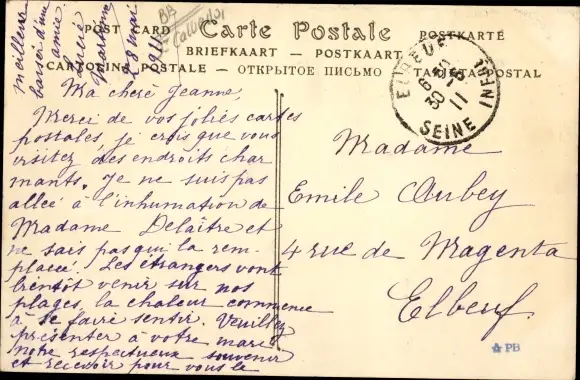 POST CARD
Carte Postale
POSTKARTE
BRIEFKAART — POSTKAART
CARTOLINA POSTALE — ОТКРЫТОЕ ПИСЬМО — TARJETA POSTAL
Ma chère Jeanne,
Merci de vos jolies cartes
postales, je crois que vous
visitez des endroits char
mants. Je ne suis pas
allée à l'inhumation de
Madame Delaître et
ne sais pas qui la rem-
place. Les étrangers vont
bientôt venir sur nos
plages, la chaleur commence
à se faire sentir. Veuillez
présenter à votre mari
notre respectueux souvenir
et recevoir pour vous le
meilleur
baiser d'une
amie.
Lucie
28 mai
1911
Calvados
SEINE INF
6
30
11
Madame
Emile Aubey
4 rue de Magenta
Elbeuf.
PB